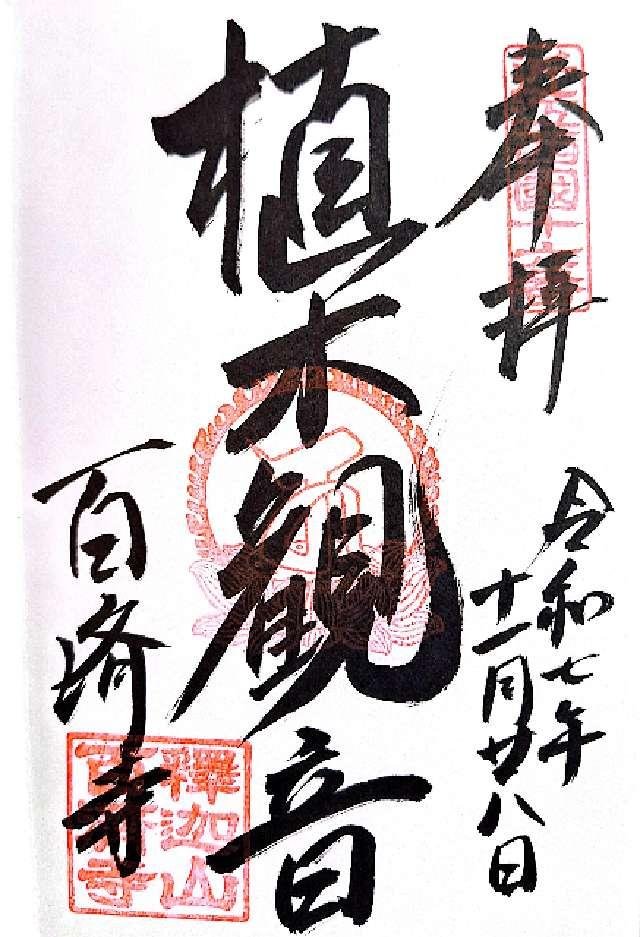 奉拝
令和七年
十一月廿八日
植木観音
百済寺
釋迦山
百済寺